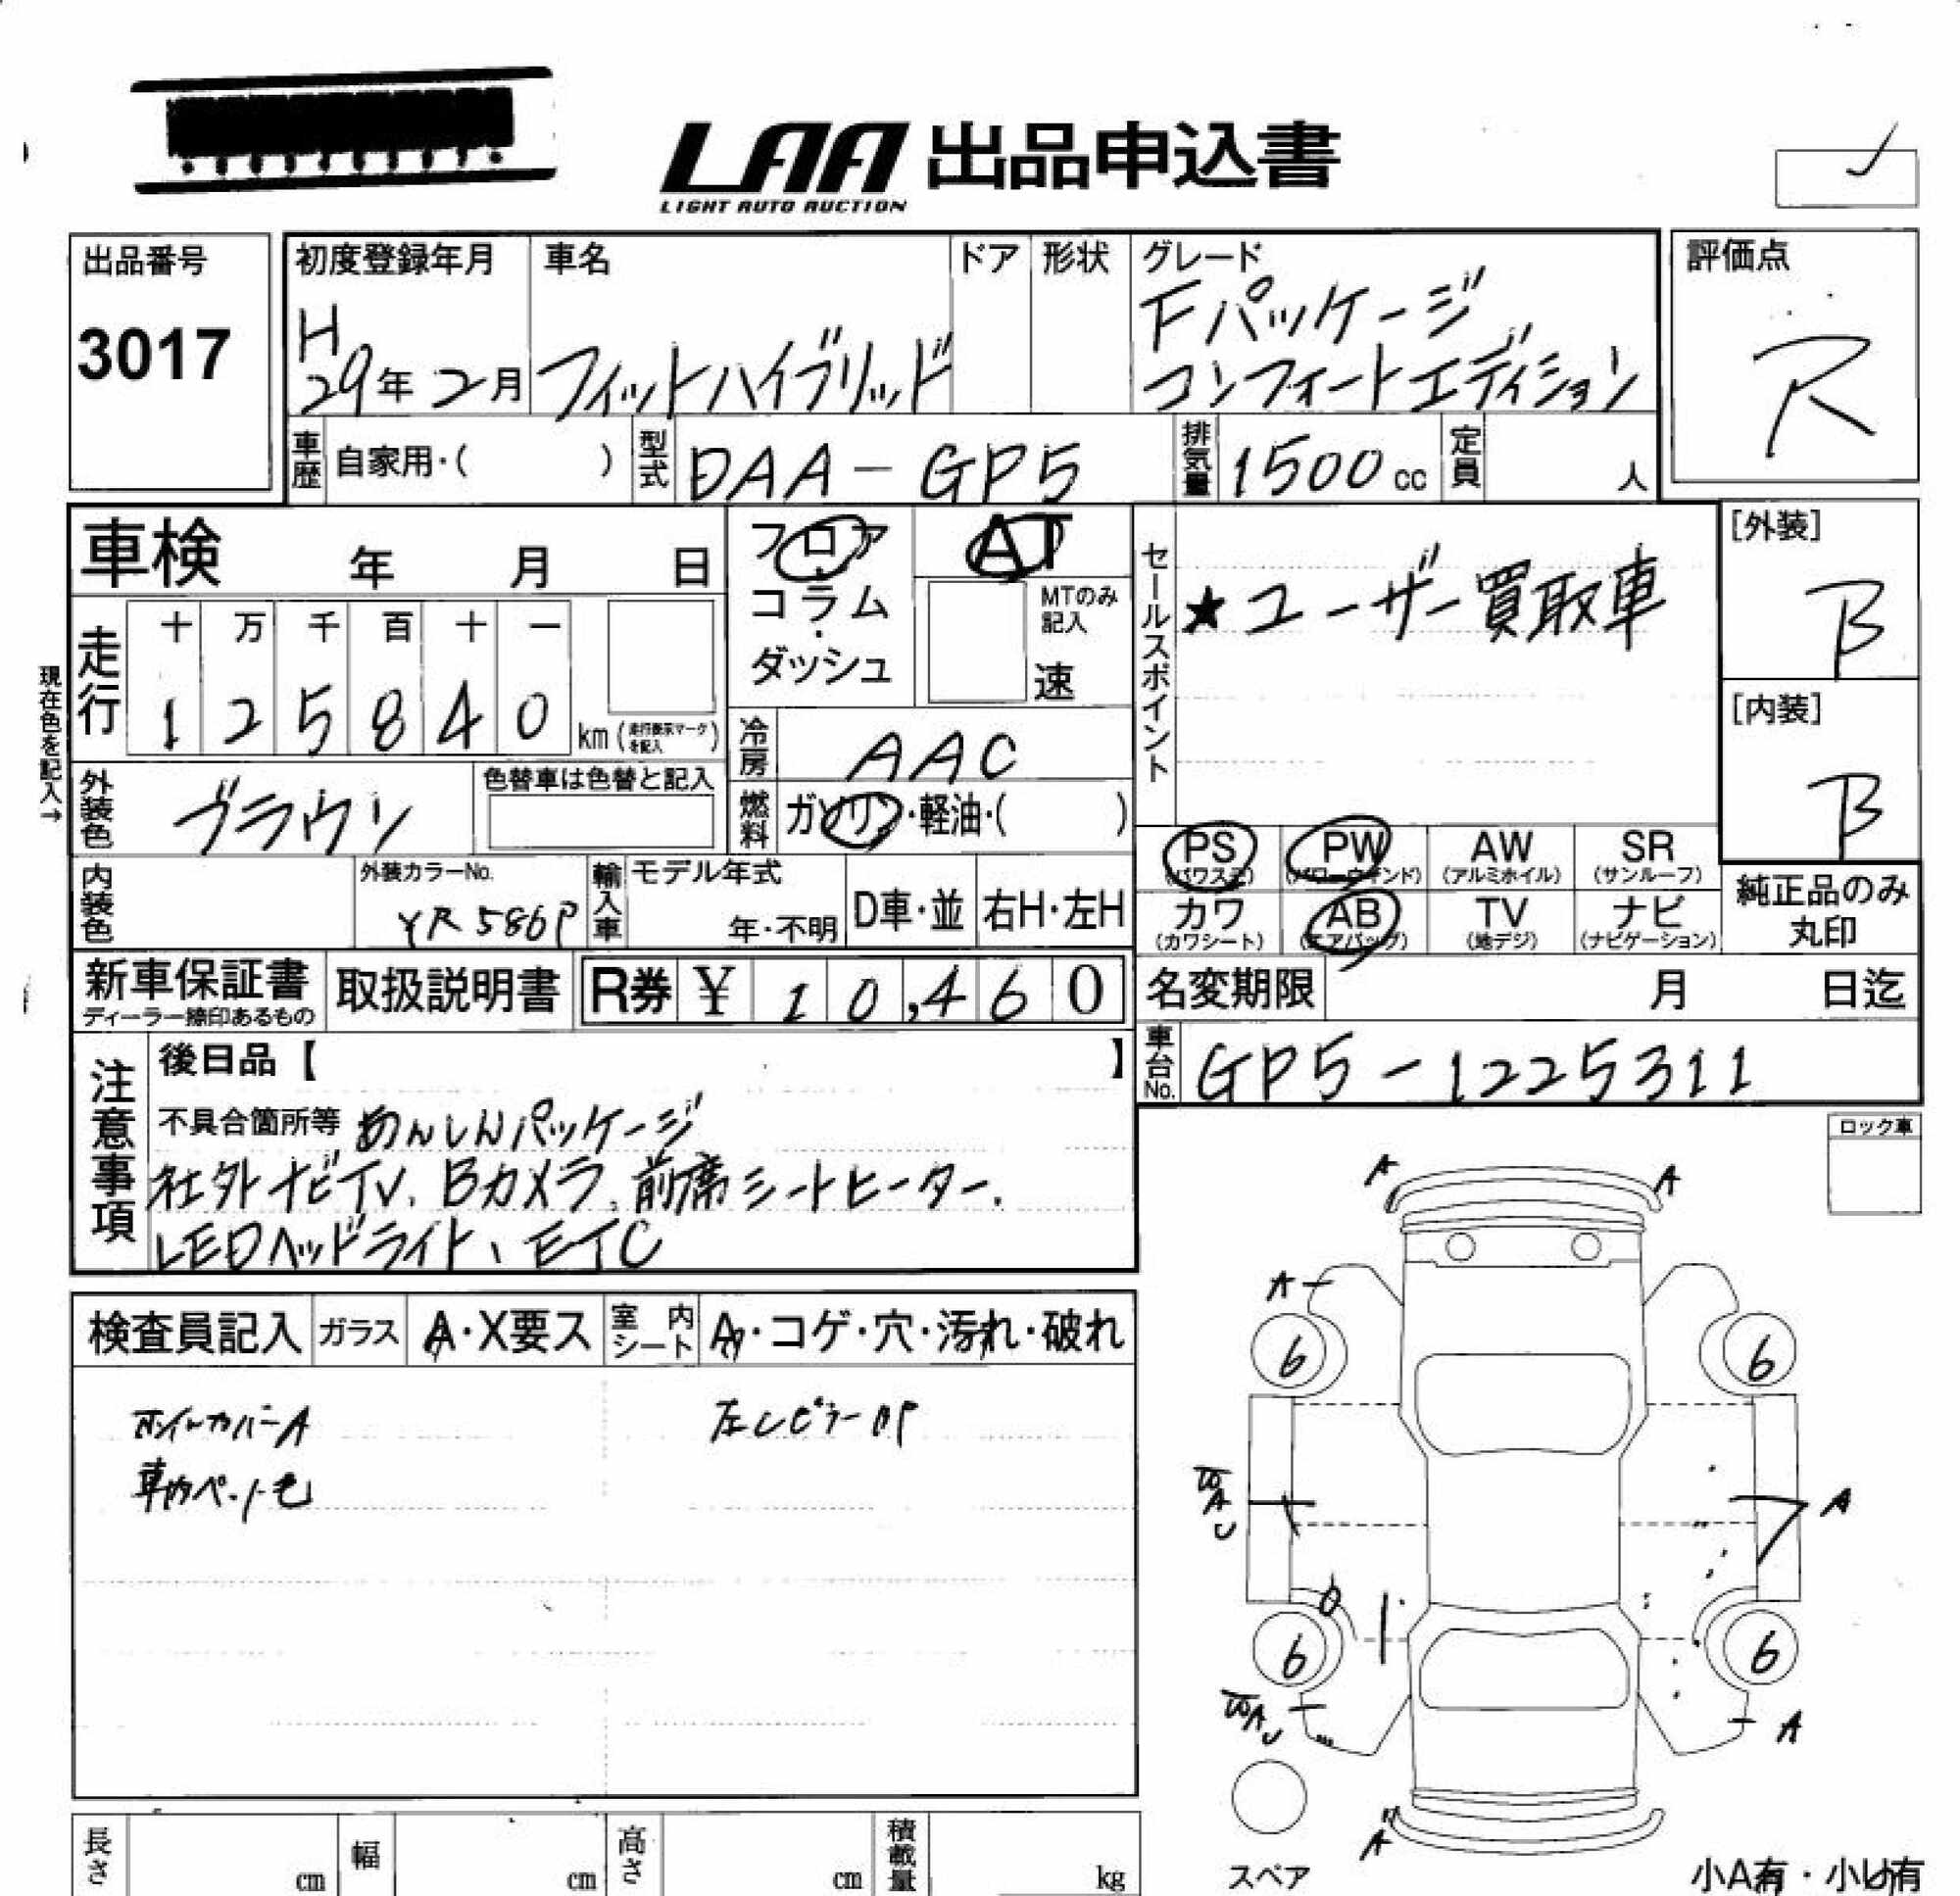 LAA 出品申込書
LIGHT AUTO AUCTION
出品番号
3017
初度登録年月
H
29年2月
車名
フィットハイブリッド
ドア
形状
グレード
Fパッケージ
コンフォートエディション
評価点
R
車歴
自家用・( )
型式
DAA-GP5
排気量
1500cc
定員
人
車検 年 月 日
フロア
コラム
・
ダッシュ
AT
MTのみ
記入
速
セールスポイント
★ユーザー買取車
[外装]
B
[内装]
B
現在色を記入→
走行
十 万 千 百 十 一
1 2 5 8 4 0
km (走行表示マークを記入)
冷房
AAC
外装色
ブラウン
色替車は色替と記入
燃料
ガソリン・軽油・( )
PS
(パワステ)
PW
(パワーウインド)
AW
(アルミホイル)
SR
(サンルーフ)
カワ
(カワシート)
AB
(エアバッグ)
TV
(地デジ)
ナビ
(ナビゲーション)
純正品のみ
丸印
内装色
外装カラーNo.
YR586P
輸入車
モデル年式
年・不明
D車・並
右H・左H
新車保証書
ディーラー捺印あるもの
取扱説明書
R券 ¥ 10,460
名変期限 月 日迄
車台No.
GP5-1225311
注意事項
後日品【 】
不具合箇所等 あんしんパッケージ
社外ナビTV、Bカメラ、前席シートヒーター、
LEDヘッドライト、ETC
ロック車
検査員記入
ガラス
A・X要ス
室内
シート
A・コゲ・穴・汚れ・破れ
ホイルカバーA
車内ペット毛
左Cピラー
A
A
A
6
6
A
A
6
6
A
A
スペア
長さ cm
幅 cm
高さ cm
積載量 kg
小A有・小U有